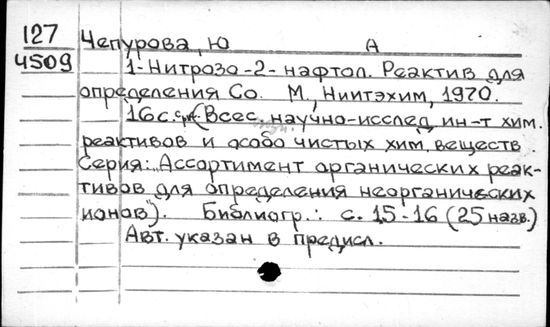 127 Чепурова, Ю А
4509 1-Нитрозо-2-нафтол. Реактив для
определения Co. М., Ниитэхим, 1970.
16 с. (Всес. научно-исслед. ин-т хим.
реактивов и особо чистых хим. веществ.
Серия: "Ассортимент органических реак-
тивов для определения неорганических
ионов"). Библиогр.: с. 15-16 (25 назв.)
Авт. указан в предисл.